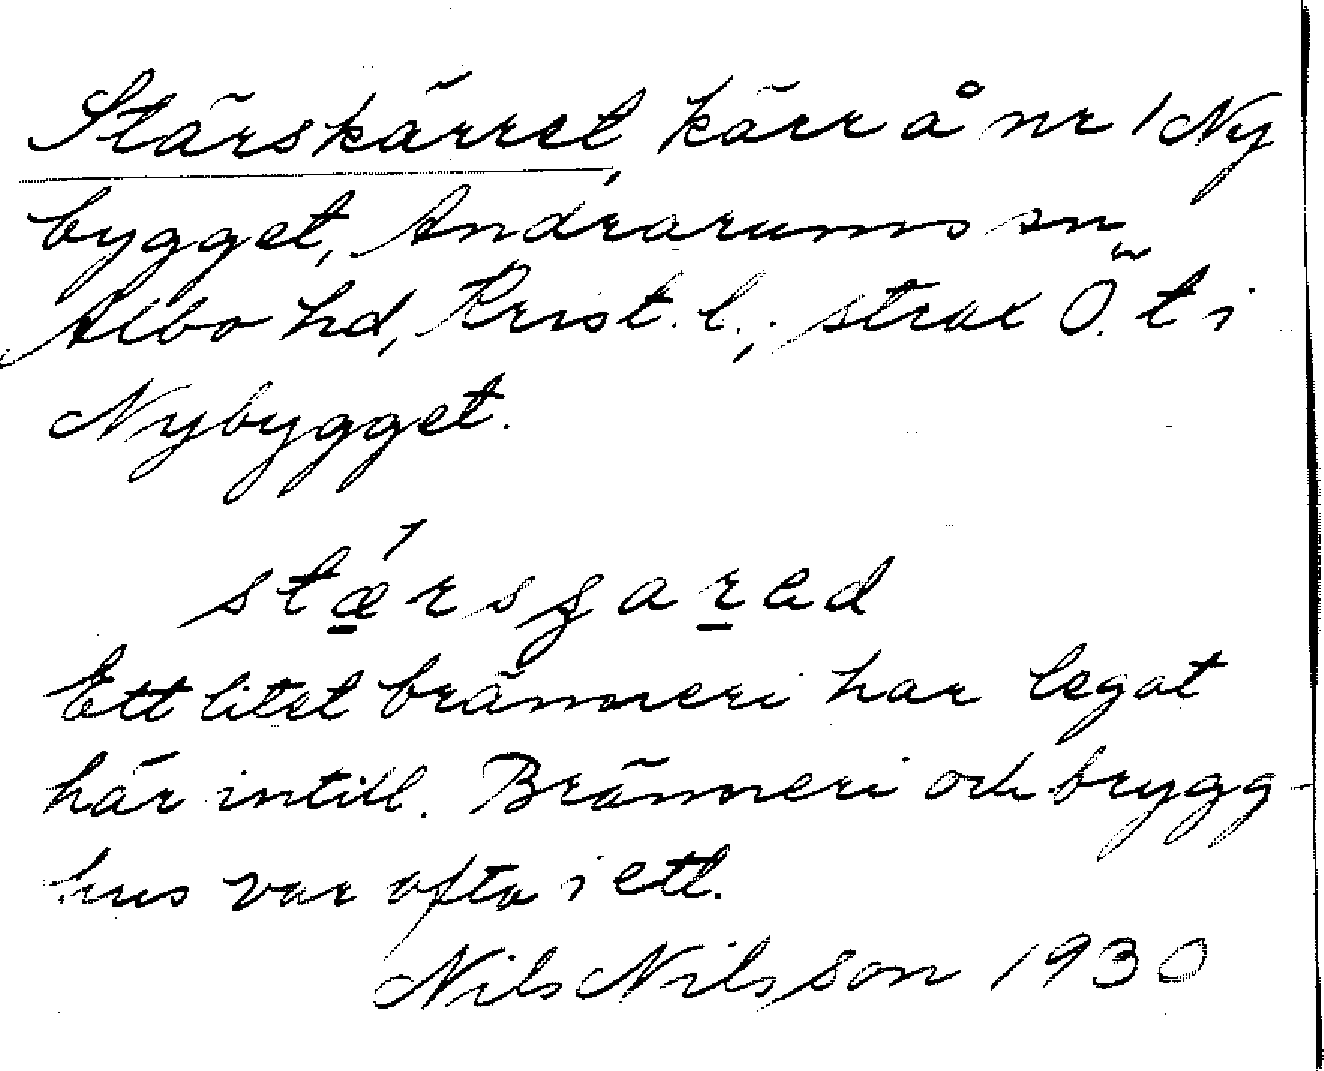 Stärskärret, kärr å nr 1 Ny
bygget, Andrarums sn,
Albo hd, Krist. l., strax Ö. t i
Nybygget.
stǽrsgarad
Ett litet bränneri har legat
här intill. Bränneri och brygg-
hus var ofta i ett.
Nils Nilsson 1930